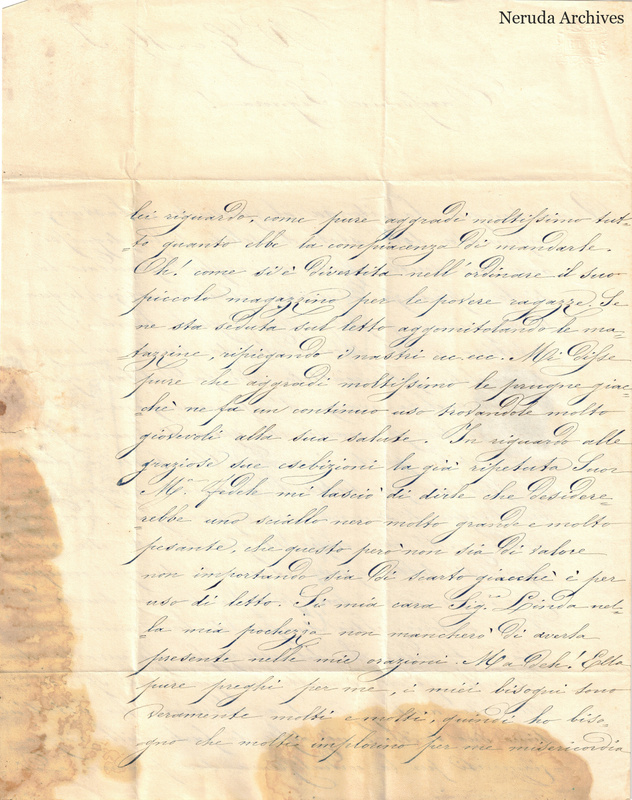 Neruda Archives
lei riguardo, come pure aggradì moltissimo tut=
=to quanto ebbe la compiacenza di mandarle.
Oh! come si è divertita nell'ordinare il suo
piccolo magazzino per le povere ragazze. Se
ne sta seduta sul letto aggomitolando le ma=
tazzine, ripiegando i nastri ecc. ecc. Mi disse
pure che aggradì moltissimo le prugne giac=
chè ne fa un continuo uso trovandole molto
giovevoli alla sua salute. In riguardo alle
graziose sue esebizioni la già ripetuta Suor
M.ª mi lasciò di dirle che desidere=
=rebbe uno sciallo nero molto grande e molto
pesante, che questo però non sia di valore
non importando sia di scarto giacchè è per
uso di letto. Sì mia cara Sig.ra Linda nel=
=la mia pochezza non mancherò di averla
presente nelle mie orazioni. Ma deh! Ella
pure preghi per me, i miei bisogni sono
veramente molti e molti, quindi ho biso=
ogno che molti implorino per me misericordia